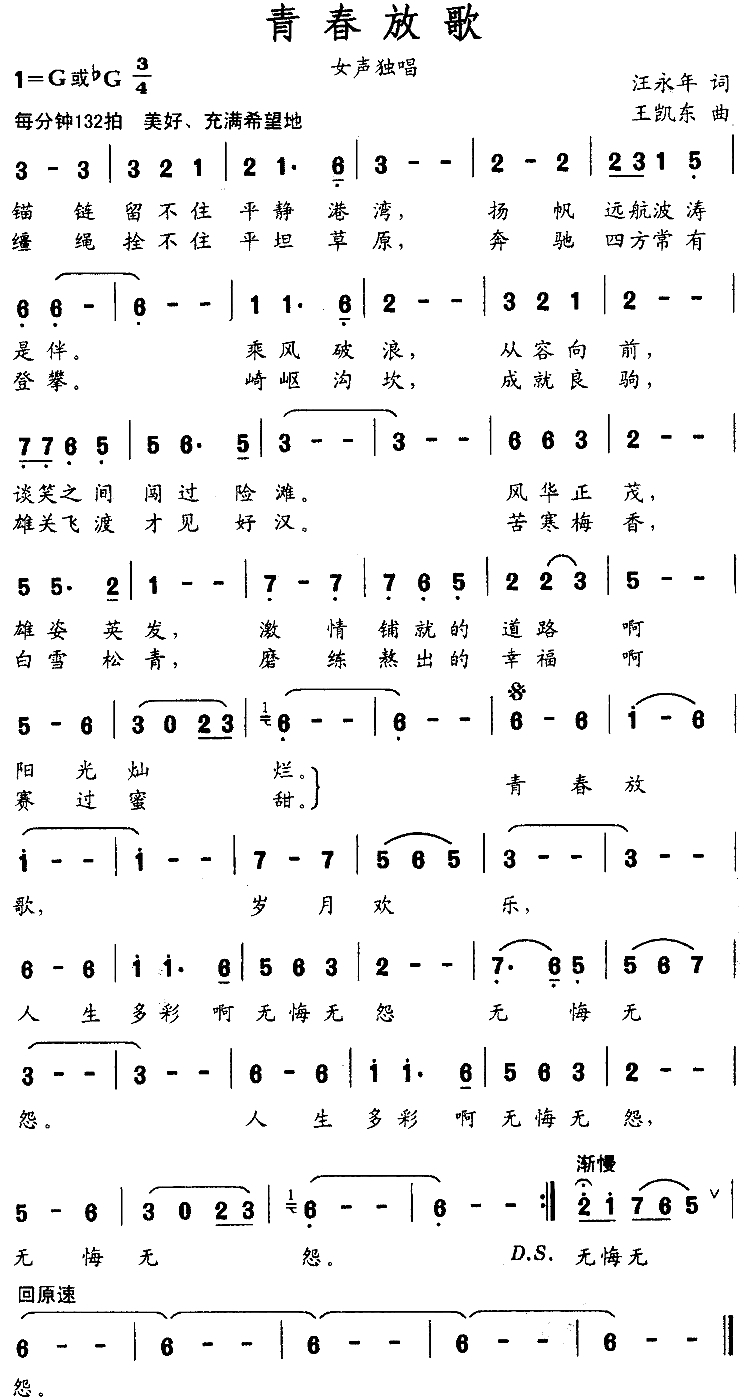 青春放歌
女声独唱
1=G或♭G 3/4
汪永年 词
每分钟132拍 美好、充满希望地
王凯东 曲
3 - 3 | 3 2 1 | 2 1· 6̣ | 3 - - | 2 - 2 | 2 3 1 5̣ |
锚 链 留不住 平静 港湾， 扬 帆 远航波涛
缰 绳 拴不住 平坦 草原， 奔 驰 四方常有
6̣ 6̣ - | 6̣ - - | 1 1· 6̣ | 2 - - | 3 2 1 | 2 - - |
是伴。 乘风 破浪， 从容向 前，
登攀。 崎岖 沟坎， 成就良 驹，
7̣ 7̣ 6̣ 5̣ | 5 6· 5 | 3 - - | 3 - - | 6 6 3 | 2 - - |
谈笑之间 闯过 险滩。 风华正 茂，
雄关飞渡 才见 好汉。 苦寒梅 香，
5 5· 2 | 1 - - | 7̣ - 7̣ | 7̣ 6̣ 5̣ | 2 2 3 | 5 - - |
雄姿 英发， 激 情 铺就的 道路 啊
白雪 松青， 磨 练 熬出的 幸福 啊
5 - 6 | 3 0 2 3 | 1 6̣ - - | 6̣ - - | 𝄋 6 - 6 | i - 6 |
阳 光 灿 烂。
青 春 放
赛 过 蜜 甜。
i - - | i - - | 7 - 7 | 5 6 5 | 3 - - | 3 - - |
歌， 岁 月 欢 乐，
6 - 6 | i i· 6 | 5 6 3 | 2 - - | 7̣· 6̣ 5̣ | 5 6 7 |
人 生 多彩 啊 无悔无 怨 无 悔 无
3 - - | 3 - - | 6 - 6 | i i· 6 | 5 6 3 | 2 - - |
怨。 人 生 多彩 啊 无悔无 怨，
渐慢
5 - 6 | 3 0 2 3 | 1 6̣ - - | 6̣ - - :‖ 2̇ i 7 6 5 ∨ |
无 悔 无 怨。 D.S. 无悔无
回原速
6 - - | 6 - - | 6 - - | 6 - - | 6 - - ‖
怨。